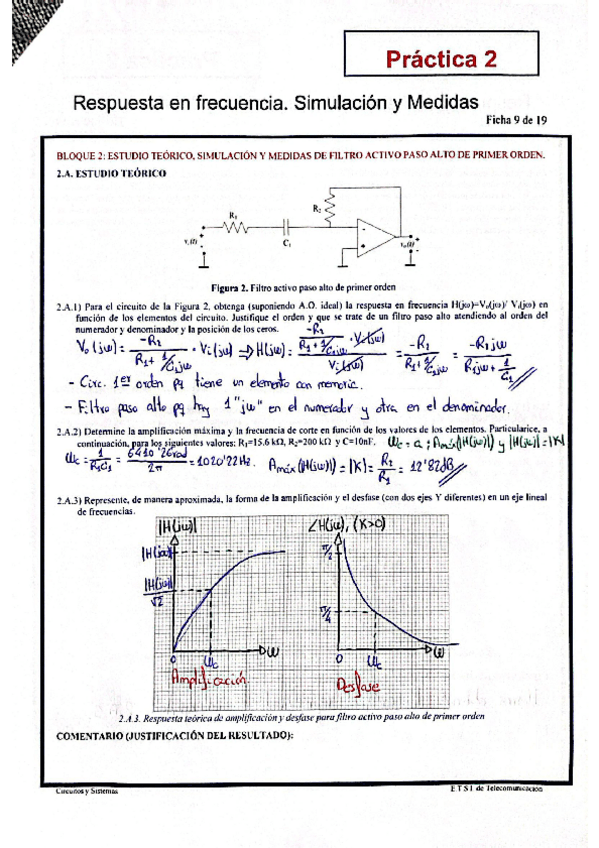 Práctica 2
Respuesta en frecuencia. Simulación y Medidas
Ficha 9 de 19
BLOQUE 2: ESTUDIO TEÓRICO, SIMULACIÓN Y MEDIDAS DE FILTRO ACTIVO PASO ALTO DE PRIMER ORDEN.
2.A. ESTUDIO TEÓRICO
R₂
R₁
C₁
Figura 2. Filtro activo paso alto de primer orden
2.A.1) Para el circuito de la Figura 2, obtenga (suponiendo A.O. ideal) la respuesta en frecuencia H(jω)=Vₒ(jω)/ Vᵢ(jω) en
función de los elementos del circuito. Justifique el orden y que se trate de un filtro paso alto atendiendo al orden del
numerador y denominador y la posición de los ceros.
V₀(jω) = -R₂ / (R₁ + 1/C₁jω) · Vᵢ(jω) ⇒ H(jω) =
- Circ. 1er orden pq tiene un elemento con memoria.
- Filtro paso alto pq hay 1 "jω" en el numerador y otra en el denominador.
2.A.2) Determine la amplificación máxima y la frecuencia de corte en función de los valores de los elementos. Particularice, a
continuación, para los siguientes valores: R₁=15.6 kΩ, R₂=200 kΩ y C=10nF. ωc = a ; Amáx(|H(jω)|) y |H(jω)| = |K|
ωc = 1/(R₁C₁) = 6410'26rad / 2π = 1020'22Hz. Amáx(|H(jω)|) = |K| = R₂/R₁ = 12'82dB
2.A.3) Represente, de manera aproximada, la forma de la amplificación y el desfase (con dos ejes Y diferentes) en un eje lineal
de frecuencias.
|H(jω)| ∠H(jω), (K>0)
π/2
|H(jω)|/√2
π/4
0 ωc ω 0 ωc ω
Amplificación Desfase
2.A.3. Respuesta teórica de amplificación y desfase para filtro activo paso alto de primer orden
COMENTARIO (JUSTIFICACIÓN DEL RESULTADO):
Circuitos y Sistemas E T S I de Telecomunicación